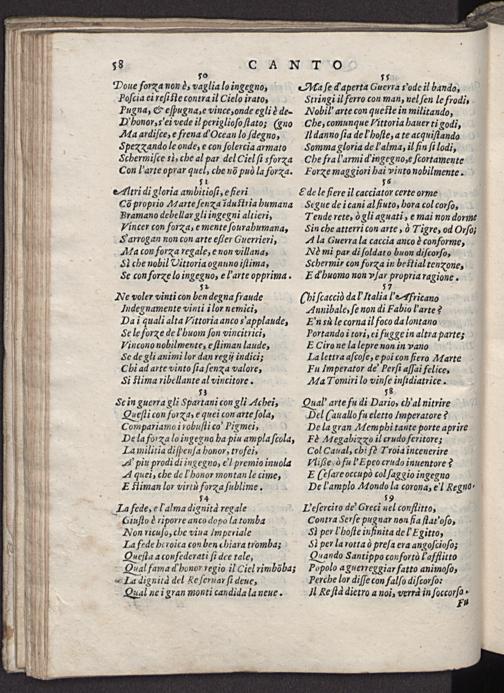 58
CANTO
50
Doue forza non è, vaglia lo ingegno,
Poscia ei resiste contra il Cielo irato,
Pugna, & espugna, e vince, onde egli è de-
D'honor, s'ei vede il periglioso stato; (gno
Ma ardisce, e frena d'Ocean lo sdegno,
Spezzando le onde, e con solercia armato
Schermisce sì, che al par del Ciel si sforza
Con l'arte oprar quel, che nõ può la forza.
51
Altri di gloria ambitiosi, e fieri
Cõ proprio Marte senza ĩdustria humana
Bramano debellar gli ingegni altieri,
Vincer con forza, e mente sourahumana,
S'arrogan non con arte esser Guerrieri,
Ma con forza regale, e non villana,
Sì che nobil Vittoria ognuno istima,
Se con forze lo ingegno, e l'arte opprima.
52
Ne voler vinti con ben degna fraude
Indegnamente vinti i lor nemici,
Da i quali alta Vittoria anco s'applaude,
Se le forze de l'huom son vincitrici,
Vincono nobilmente, e stiman laude,
Se de gli animi lor dan regij indici;
Chi ad arte vinto sia senza valore,
Si stima ribellante al vincitore.
53
Se in guerra gli Spartani con gli Achei,
Questi con forza, e quei con arte sola,
Compariamo i robusti co' Pigmei,
De la forza lo ingegno ha piu ampla scola,
La militia dispensa honor, trofei,
A' piu prodi di ingegno, e'l premio inuola
A quei, che de l'honor montan le cime,
E stiman lor virtù forza sublime.
54
La fede, e l'alma dignità regale
Giusto è riporre anco dopo la tomba
Non ricuso, che viua Imperiale
La fede heroica con ben chiara tromba;
Questa a confederati si dee tale,
Qual fama d'honor regio il Ciel rimbõba;
La dignità del Re seruar si deue,
Qual ne i gran monti candida la neue.
55
Ma se d'aperta Guerra s'ode il bando,
Stringi il ferro con man, nel sen le frodi,
Nobil'arte con queste in militando,
Che, comunque Vittoria hauer ti godi,
Il danno sia de l'hoste, a te acquistando
Somma gloria de l'alma, il fin si lodi,
Che fra l'armi d'ingegno, e scortamente
Forze maggiori hai vinto nobilmente.
56
E de le fiere il cacciator certe orme
Segue de i cani al fiuto, hora col corso,
Tende rete, ò gli aguati, e mai non dorme
Sin che atterri con arte, ò Tigre, od Orso;
A la Guerra la caccia anco è conforme,
Nè mi par di soldato buon discorso,
Schermir con forza in bestial tenzone,
E d'huomo non vsar propria ragione.
57
Chi scacciò da l'Italia l'Africano
Annibale, se non di Fabio l'arte?
E'n sù le corna il foco da lontano
Portando i tori, ei fugge in altra parte;
E Ciro ne la lepre non in vano
La lettra ascose, e poi con fiero Marte
Fu Imperator de' Persi assai felice,
Ma Tomiri lo vinse insidiatrice.
58
Qual'arte fu di Dario, ch'al nitrire
Del Cauallo fu eletto Imperatore?
De la gran Memphi tante porte aprire
Fè Megabizzo il crudo feritore;
Col Caual, chi fè Troia incenerire
Vlisse, ò fu l'Epeo crudo inuentore?
E Cesare occupò col saggio ingegno
De l'amplo Mondo la corona, e'l Regno.
59
L'esercito de' Greci nel conflitto,
Contra Serse pugnar non fia stat'oso,
Sì per l'hoste infinita de l'Egitto,
Sì per la rotta ò presa era angoscioso;
Quando Santippo confortò l'afflitto
Popolo a guerreggiar fatto animoso,
Perche lor disse con falso discorso:
Il Re stà dietro a noi, verrà in soccorso.
Fu